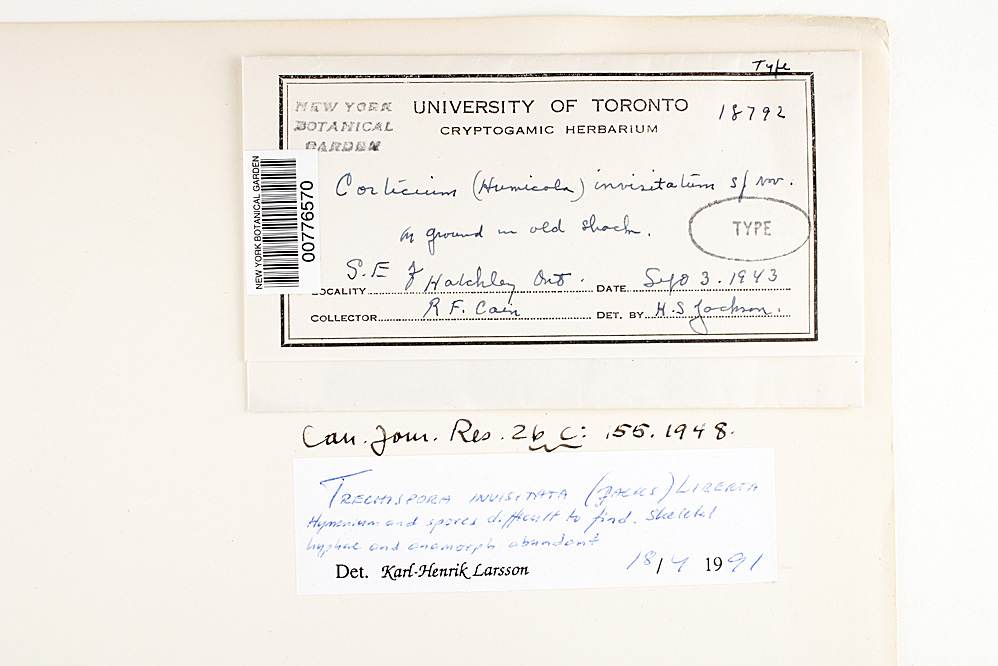 Type
NEW YORK
BOTANICAL
GARDEN
UNIVERSITY OF TORONTO
CRYPTOGAMIC HERBARIUM
18792
NEW YORK BOTANICAL GARDEN
00776570
Corticium (Humicola) invisitatum sp nov.
on ground in old shack.
TYPE
LOCALITY S.E of Hatchley Ont. DATE Sept 3. 1943
COLLECTOR R F. Cain DET. BY H. S Jackson.
Can. Jour. Res. 26 C: 155. 1948.
TRECHISPORA INVISITATA (JACKS) LIBERTA
Hymenium and spores difficult to find. Skeletal
hyphae and anamorph abundant
Det. Karl-Henrik Larsson 18/4 1991